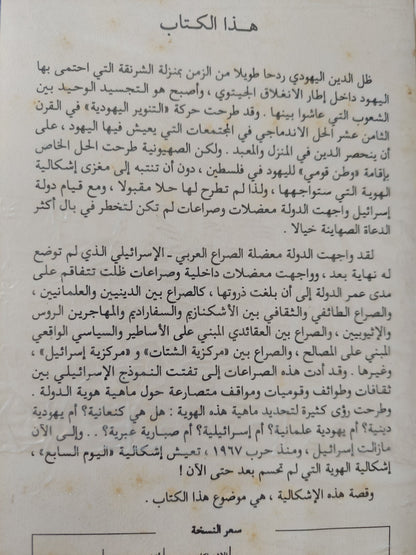 هـذا الكـتاب
ظل الدين اليهودي ردحا طويلا من الزمن بمنزلة الشرنقة التي احتمى بها
اليهود داخل إطار الانغلاق الجيتوي ، وأصبح هو التجسيد الوحيد بين
الشعوب التي عاشوا بينها . وقد طرحت حركة «التنوير اليهودية» في القرن
الثامن عشر الحل الاندماجي في المجتمعات التي يعيش فيها اليهود ، على
أن ينحصر الدين في المنزل والمعبد . ولكن الصهيونية طرحت الحل الخاص
بإقامة «وطن قومي» لليهود في فلسطين ، دون أن تنتبه إلى مغزى إشكالية
الهوية التي ستواجهها ، ولذا لم تطرح لها حلا مقبولا ، ومع قيام دولة
إسرائيل واجهت الدولة معضلات وصراعات لم تكن لتخطر في بال أكثر
الدعاة الصهاينة خيالا .
لقد واجهت الدولة معضلة الصراع العربي - الإسرائيلي الذي لم توضع
له نهاية بعد ، وواجهت معضلات داخلية وصراعات ظلت تتفاقم على
مدى عمر الدولة إلى أن بلغت ذروتها ، كالصراع بين الدينيين والعلمانيين ،
والصراع الطائفي والثقافي بين الأشكنازيم والسفاراديم والمهاجرين الروس
والإثيوبيين ، والصراع بين العقائدي المبني على الأساطير والسياسي الواقعي
المبني على المصالح ، والصراع بين «مركزية الشتات» و «مركزية إسرائيل» ،
وغيرها . وقد أدت هذه الصراعات إلى تفتت النموذج الإسرائيلي بين
ثقافات وطوائف وقوميات ومواقف متصارعة حول ماهية هوية الدولة .
وطرحت رؤى كثيرة لتحديد ماهية هذه الهوية : هل هي كنعانية؟ أم يهودية
دينية؟ أم يهودية علمانية؟ أم إسرائيلية؟ أم صبارية عبرية؟ . . وإلى الآن
مازالت إسرائيل ، ومنذ حرب ١٩٦٧ ، تعيش إشكالية «اليوم السابع» ،
إشكالية الهوية التي لم تحسم بعد حتى الآن !
وقصة هذه الإشكالية ، هي موضوع هذا الكتاب .
سعر النسخة